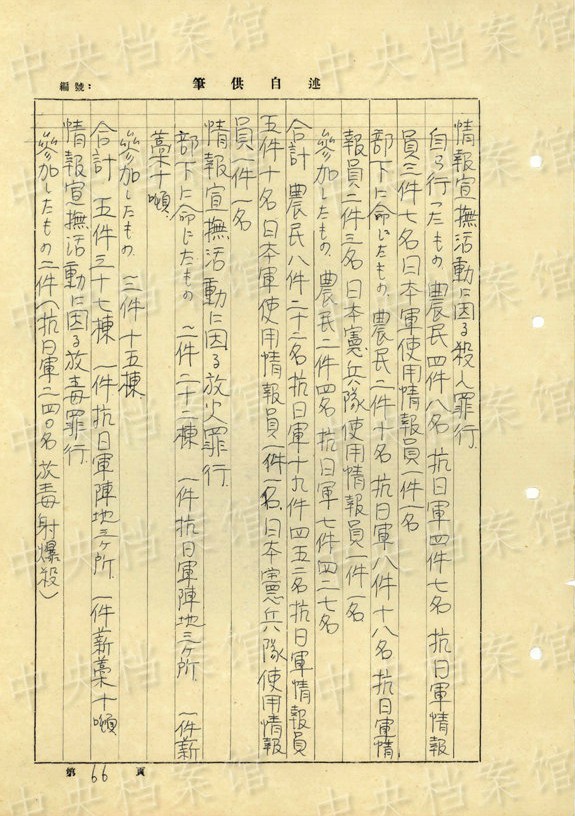 中央档案馆
編號：
筆供自述
情報宣撫活動に因る殺人罪行.
自ら行ったもの、農民四件八名 抗日軍四件七名 抗日軍情報
員三件七名日本軍使用情報員一件一名
部下に命じたもの、農民二件十名 抗日軍八件十八名 抗日軍情
報員二件三名 日本憲兵隊使用情報員一件一名
参加したもの、農民二件四名 抗日軍七件四二七名
合計 農民八件二十二名抗日軍十九件四五二名抗日軍情報員
五件十名 日本軍使用情報員一件一名、日本憲兵隊使用情報
員一件一名
情報宣撫活動に因る放火罪行.
部下に命じたもの 二件二十二棟 一件抗日軍陣地三ヶ所. 一件薪
藁十噸
参加したもの、三件十五棟.
合計 五件三十七棟 一件抗日軍陣地三ヶ所. 一件薪藁十噸
情報宣撫活動に因る放毒罪行.
参加したもの二件(抗日軍二四〇名 放毒射爆殺)
第 66 頁